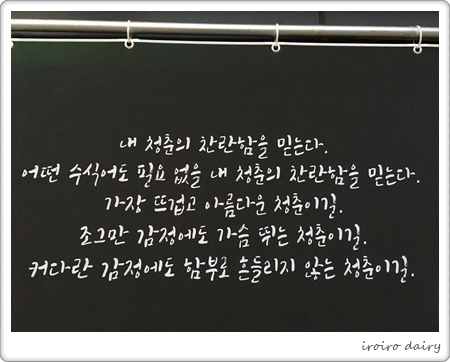 내 청춘의 찬란함을 믿는다.
어떤 수식어도 필요 없을 내 청춘의 찬란함을 믿는다.
가장 뜨겁고 아름다운 청춘이길.
조그만 감정에도 가슴 뛰는 청춘이길.
커다란 감정에도 함부로 흔들리지 않는 청춘이길.
iroiro dairy